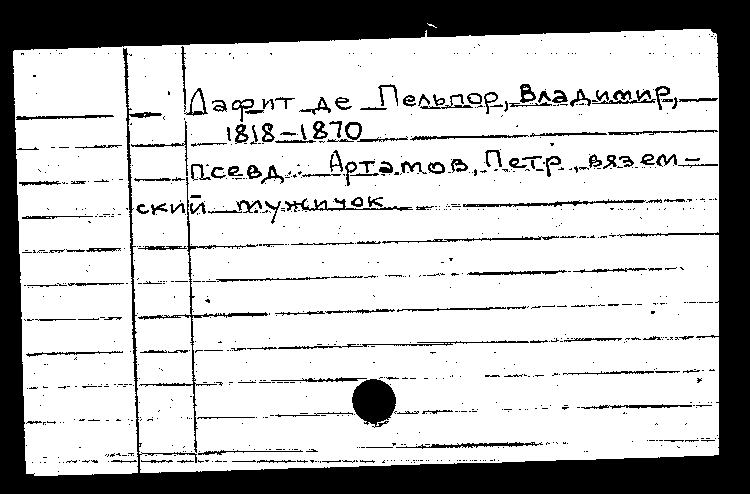 Лафит де Пельпор, Владимир,
1818-1870
псевд. Артамов, Петр, вязем-
ский мужичок